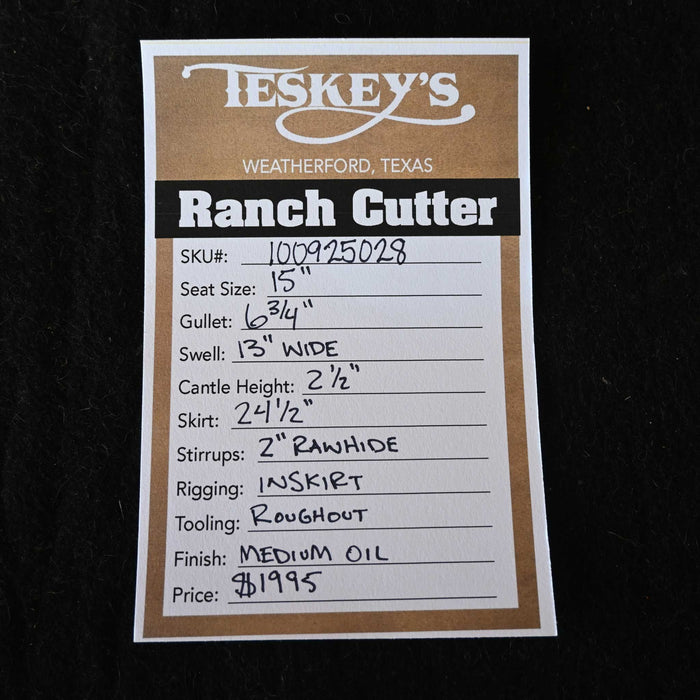 TESKEY'S
WEATHERFORD, TEXAS
Ranch Cutter
SKU#: 100925028
Seat Size: 15"
Gullet: 6 3/4"
Swell: 13" WIDE
Cantle Height: 2 1/2"
Skirt: 24 1/2"
Stirrups: 2" RAWHIDE
Rigging: INSKIRT
Tooling: ROUGHOUT
Finish: MEDIUM OIL
Price: $1995